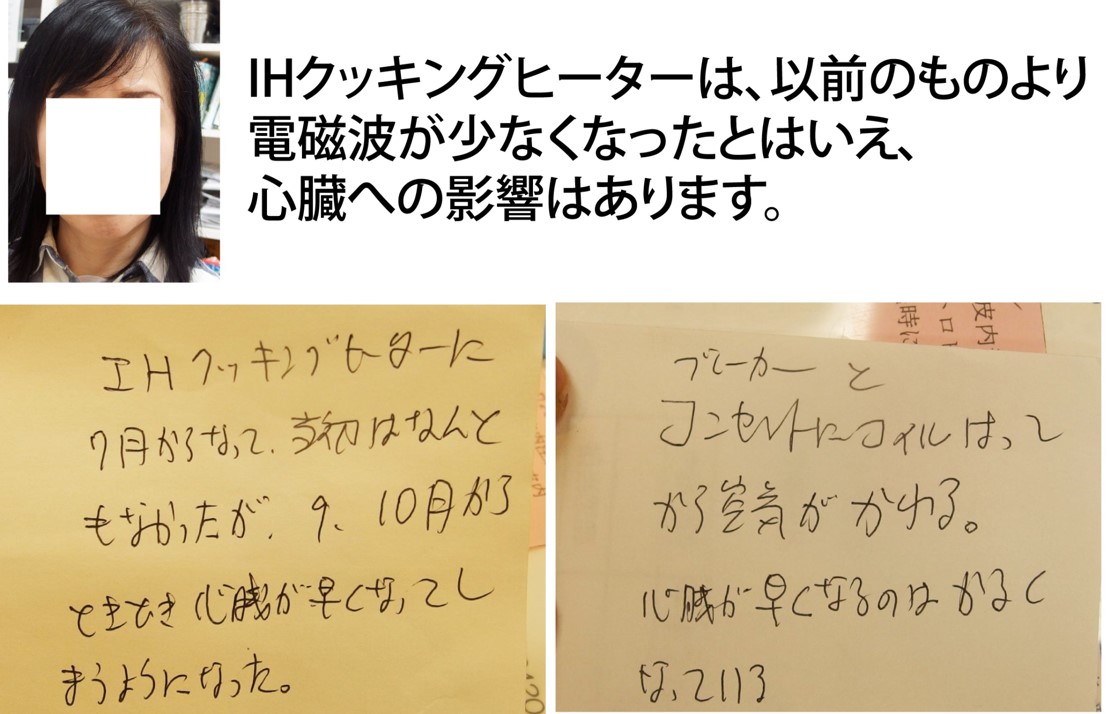 IHクッキングヒーターは、以前のものより
電磁波が少なくなったとはいえ、
心臓への影響はあります。
IHクッキングヒーターに
7月からなって、当初はなんと
もなかったが、9、10月から
ときどき心臓が早くなってし
まうようになった。
ブレーカーと
コンセントにコイルはって
から空気がかわる。
心臓が早くなるのはかるく
なっている
皮内
時に